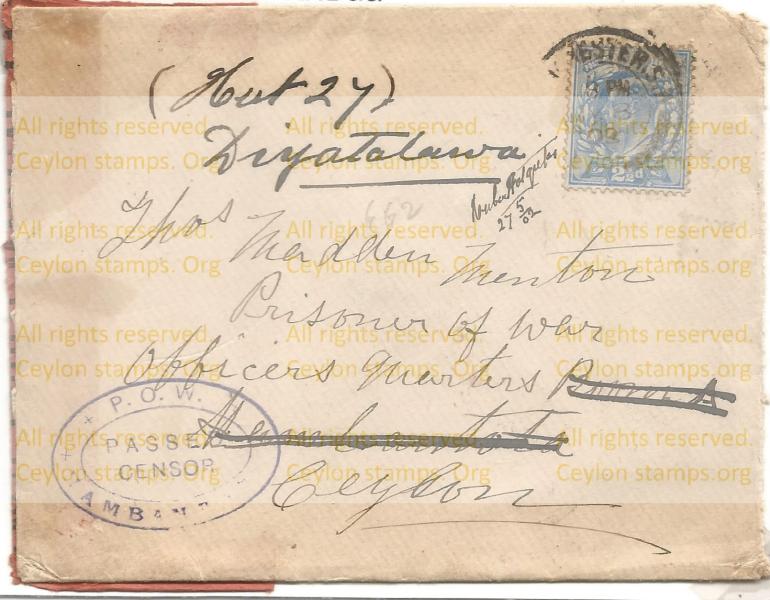 (Hut 27)
Diyatalawa
27 5/02
662
Thos
Madden Menton
Prisoner of War
Officers Quarters
Hambantota
Ceylon
P.O.W.
PASSED
CENSOR
AMBAN
STER.S
8 PM
02
2½d
All rights reserved. All rights reserved. All rights reserved.
Ceylon stamps. Org Ceylon stamps. Org Ceylon stamps.org
All rights reserved. All rights reserved. All rights reserved.
Ceylon stamps. Org Ceylon stamps. Org Ceylon stamps.org
All rights reserved. All rights reserved. All rights reserved.
Ceylon stamps. Org Ceylon stamps. Org Ceylon stamps.org
All rights reserved. All rights reserved. All rights reserved.
Ceylon stamps. Org Ceylon stamps. Org Ceylon stamps.org